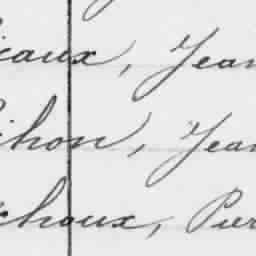 icaux, Jean
ihon, Jean
choux, Pier